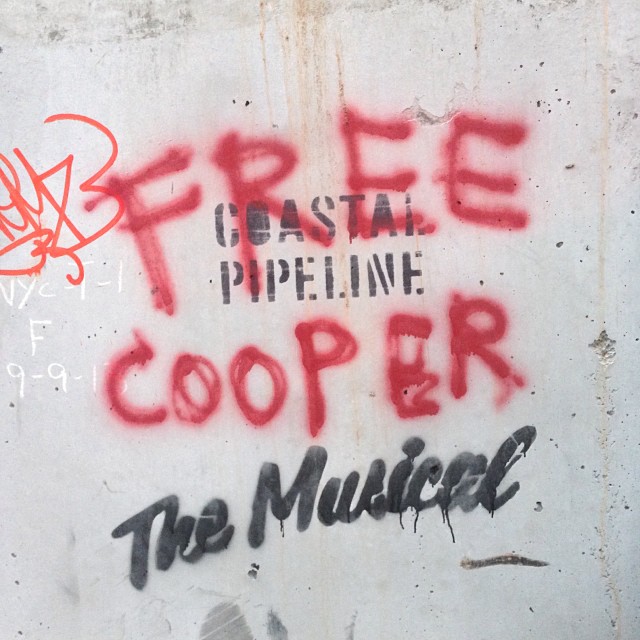 FREE
COASTAL
PIPELINE
COOPER
The Musical
NYC-T-1
F